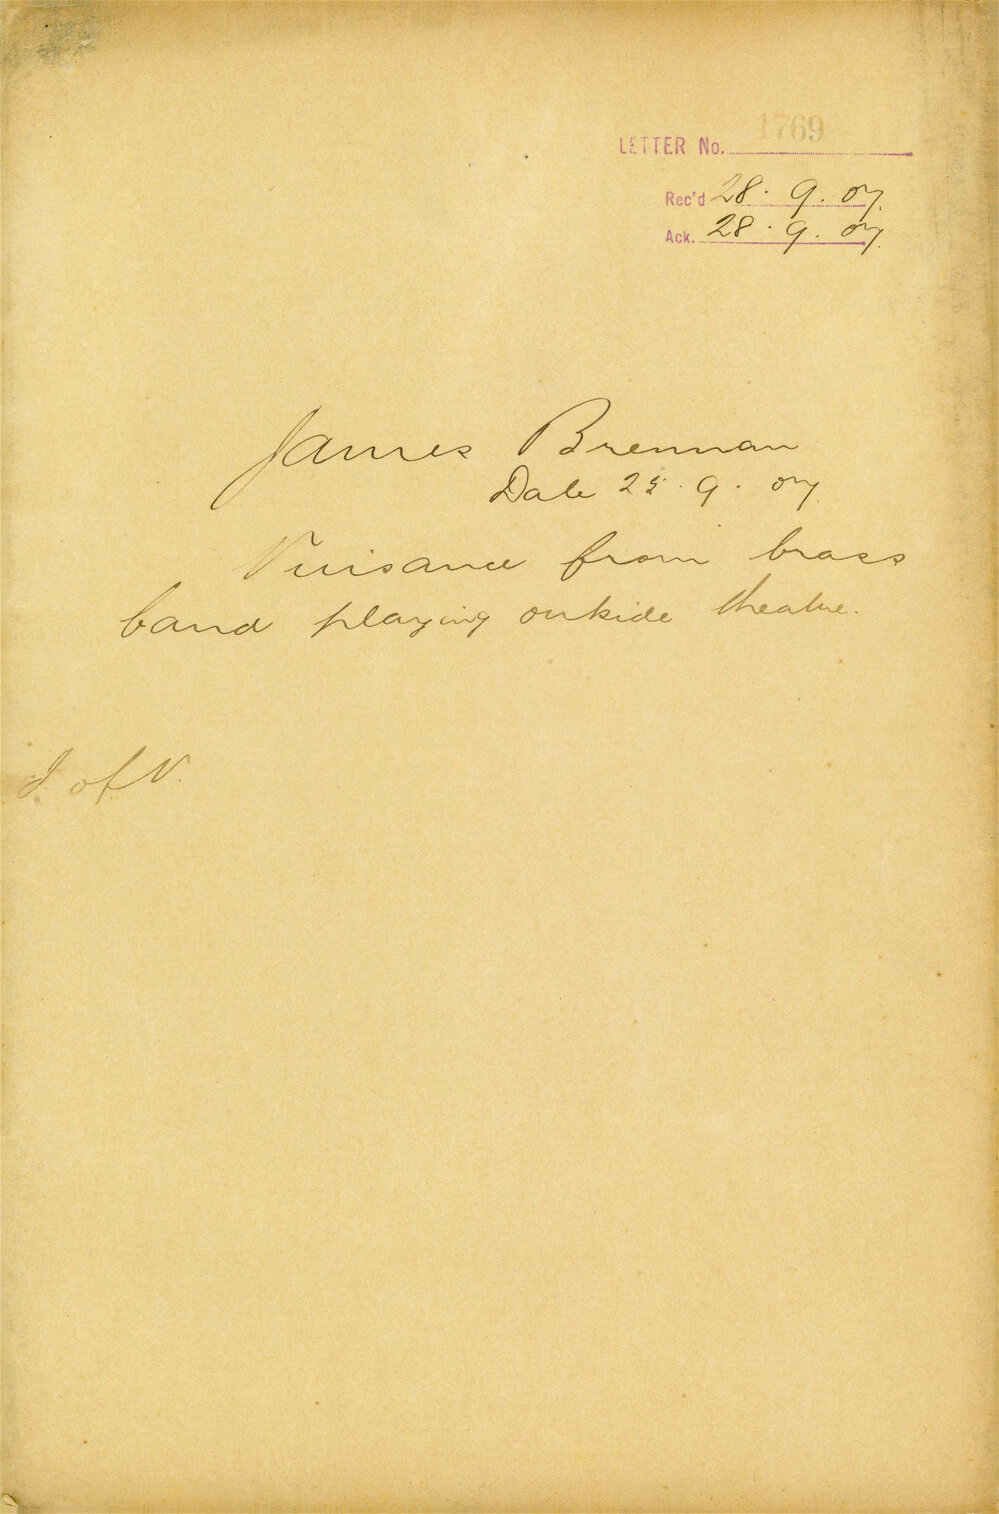 LETTER No. 1769
Rec'd 28. 9. 07.
Ack. 28. 9. 07.
James Brennan
Date 9. 07.
Nuisance from brass
band playing outside theatre.
I. of N.